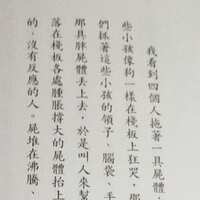 我看到四個人拖著一具屍體
些小孩像狗一樣在棧板上狂哭，那
們抓著這些小孩的領子、腦袋、手
那具胖屍體丟上去，於是叫人來幫
落在棧板各處腫脹撐大的屍體抬上
的、沒有反應的人。屍堆在沸騰、